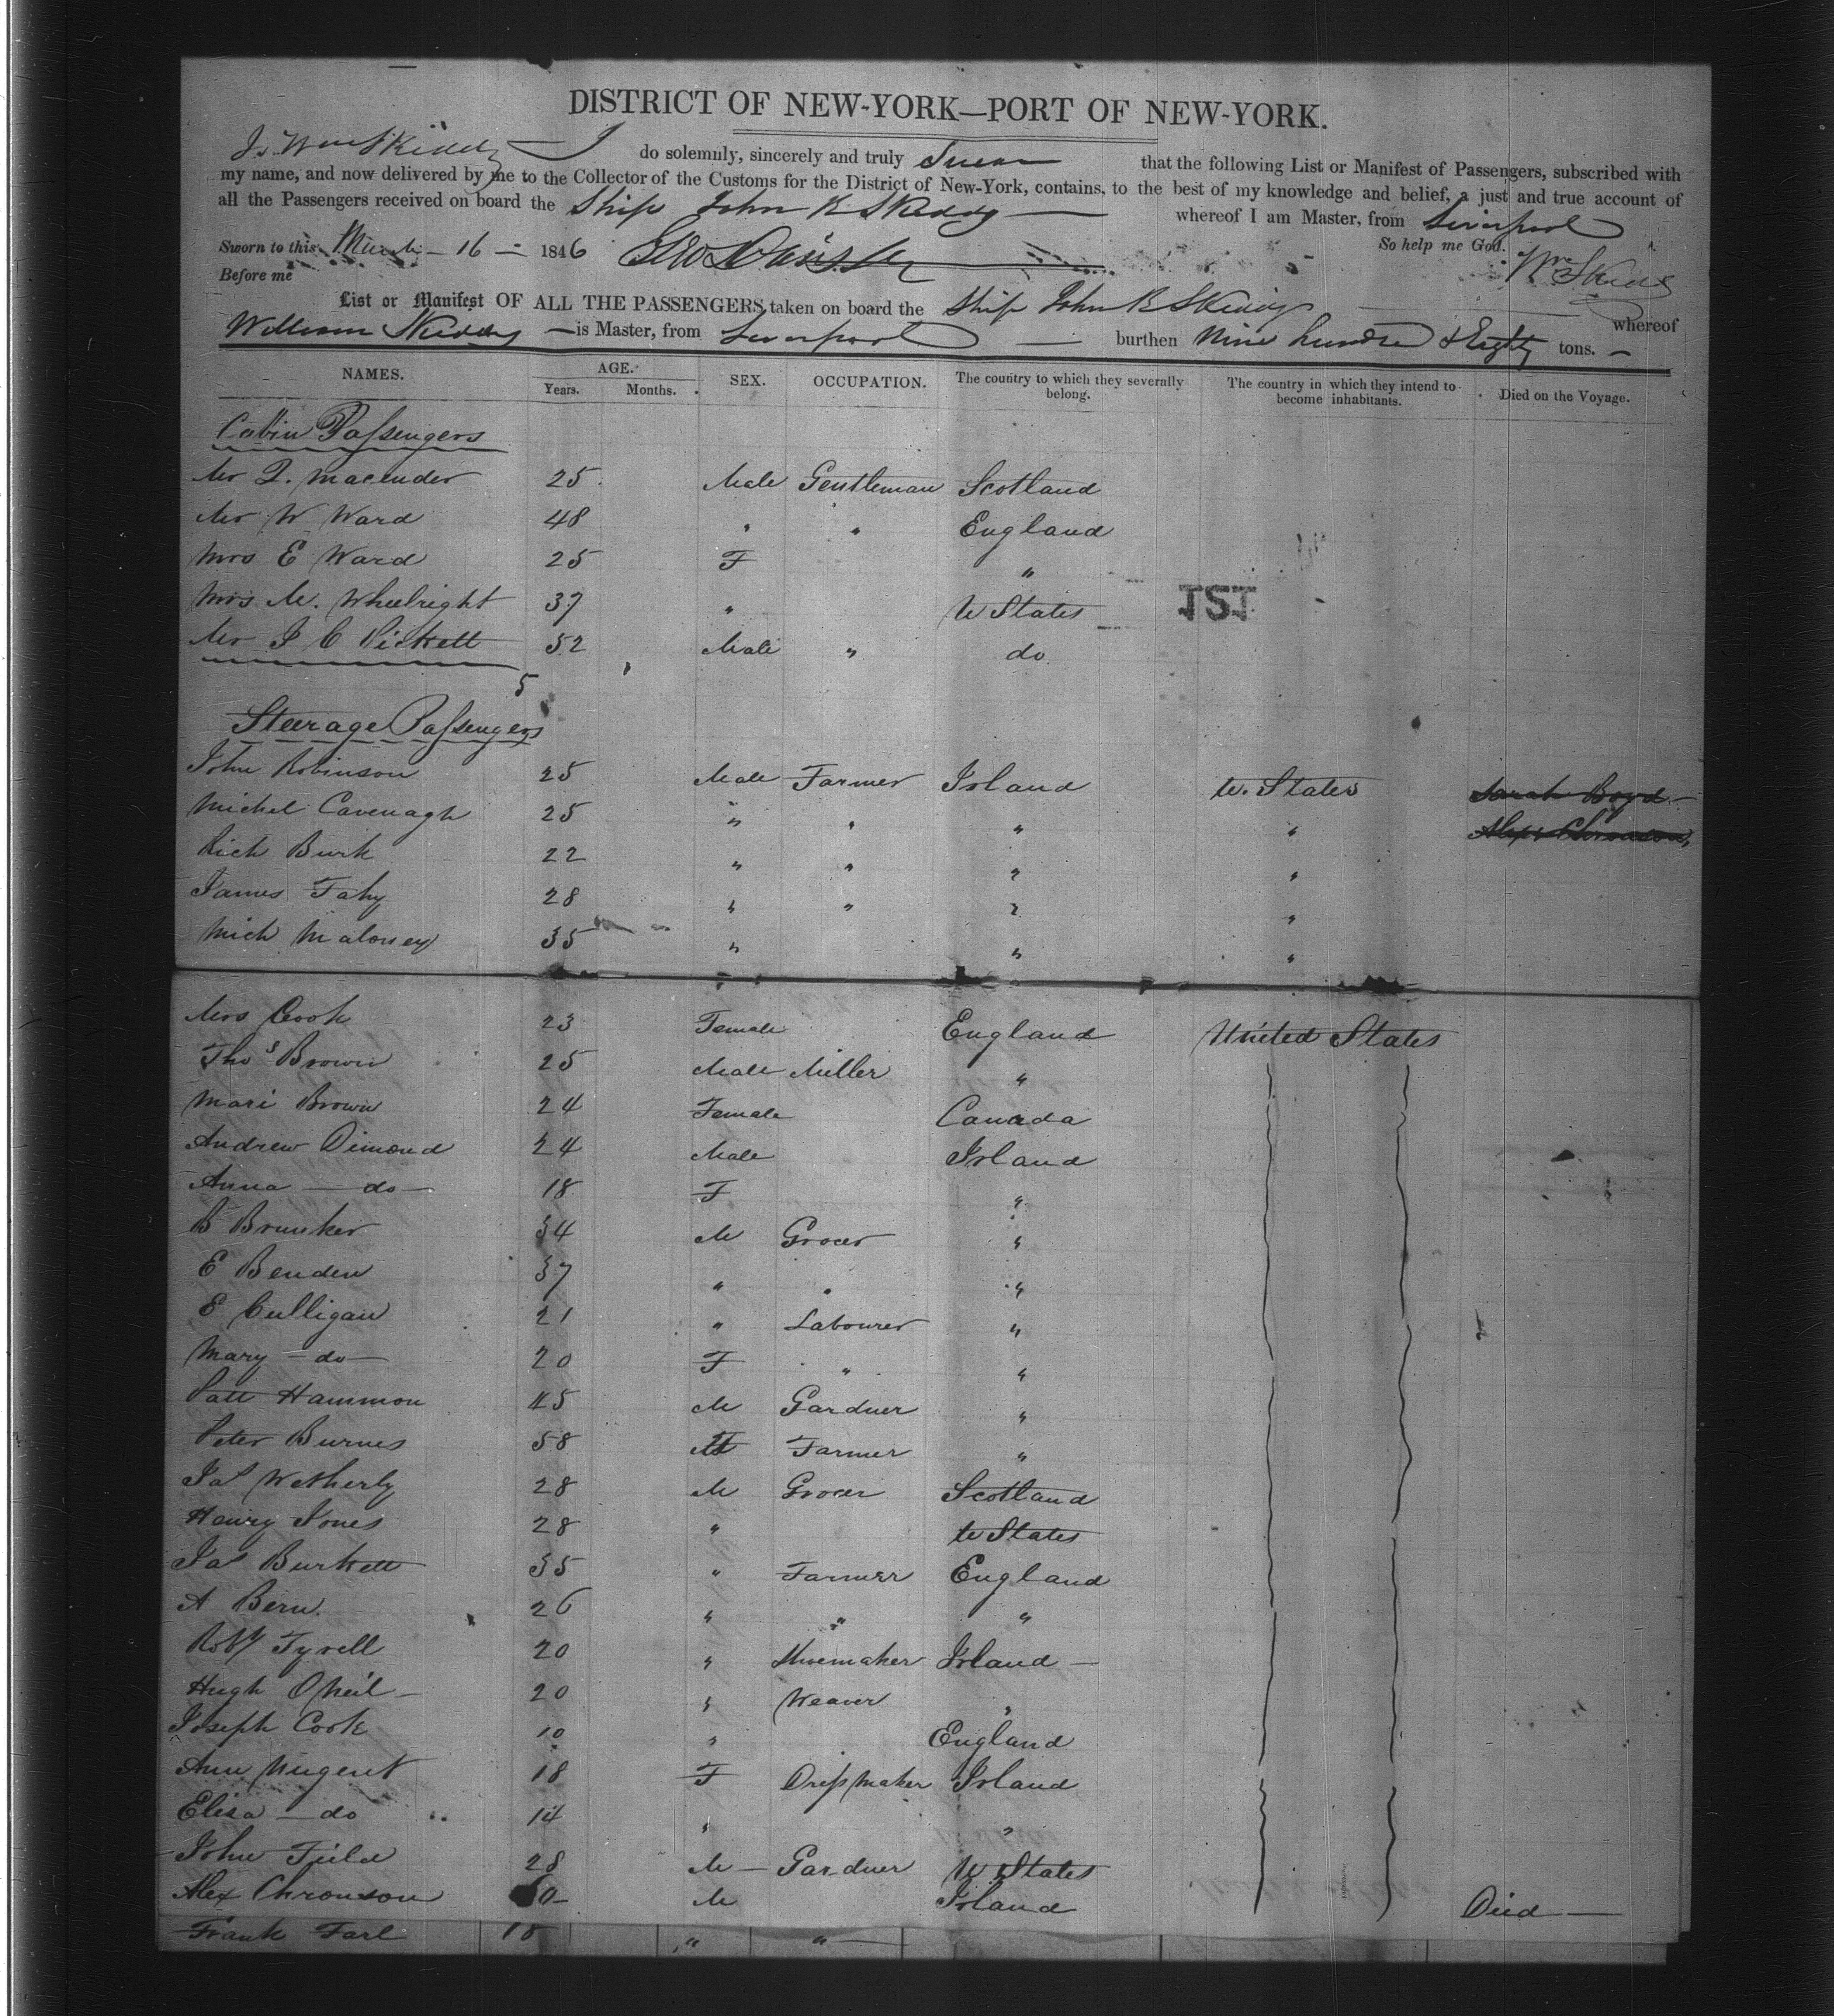 DISTRICT OF NEW-YORK—PORT OF NEW-YORK.
I, Wm Skiddy — I do solemnly, sincerely and truly Swear that the following List or Manifest of Passengers, subscribed with
my name, and now delivered by me to the Collector of the Customs for the District of New-York, contains, to the best of my knowledge and belief, a just and true account of
all the Passengers received on board the Ship John R Skiddy — whereof I am Master, from Liverpool
Sworn to this March 16 — 1846 So help me God.
Before me Wm Skiddy
List or Manifest OF ALL THE PASSENGERS taken on board the Ship John R Skiddy — whereof
William Skiddy — is Master, from Liverpool — burthen Nine hundred & Eighty tons. —
NAMES. AGE. Years. Months. SEX. OCCUPATION. The country to which they severally belong. The country in which they intend to become inhabitants. Died on the Voyage.
Cabin Passengers
Mr Macender 25 Male Gentleman Scotland
Mr W Ward 48 " " England
Mrs E Ward 25 F "
Mrs M. Wheelright 37 " U States
121
Mr J C Pickett 52 Male " do
5
Steerage Passengers
John Robinson 25 Male Farmer Irland U. States Sarah Boyd —
Michel Cavenagh 25 " " " " Alex Chronson
Rich Burk 22 " " " "
James Fahy 28 " " " "
Mich Maloney 35 " " "
Mrs Cook 23 Female England United States
Thos Brown 25 Male Miller "
Mari Brown 24 Female Canada
Andrew Dimond 24 Male Irland
Anna — do — 18 F "
B Brunker 34 M Grocer "
E Benden 37 " " "
E Culligan 21 " Labourer "
Mary — do — 20 F " "
Patt Hammon 45 M Gardner "
Peter Burnes 58 M Farmer "
Jas Wetherly 28 M Grocer Scotland
Henry Jones 28 " U States
Jas Burkett 35 " Farmer England
A Bern. 26 " " "
Robt Tyrell 20 " Shoemaker Irland —
Hugh ONeil — 20 " Weaver "
Joseph Cook 10 " England
Ann Nugent 18 F Dressmaker Irland
Elisa — do 14 " "
John Field 28 M — Gardner U States
Alex Chronson M Irland Died —
Frank Farl 18 " "